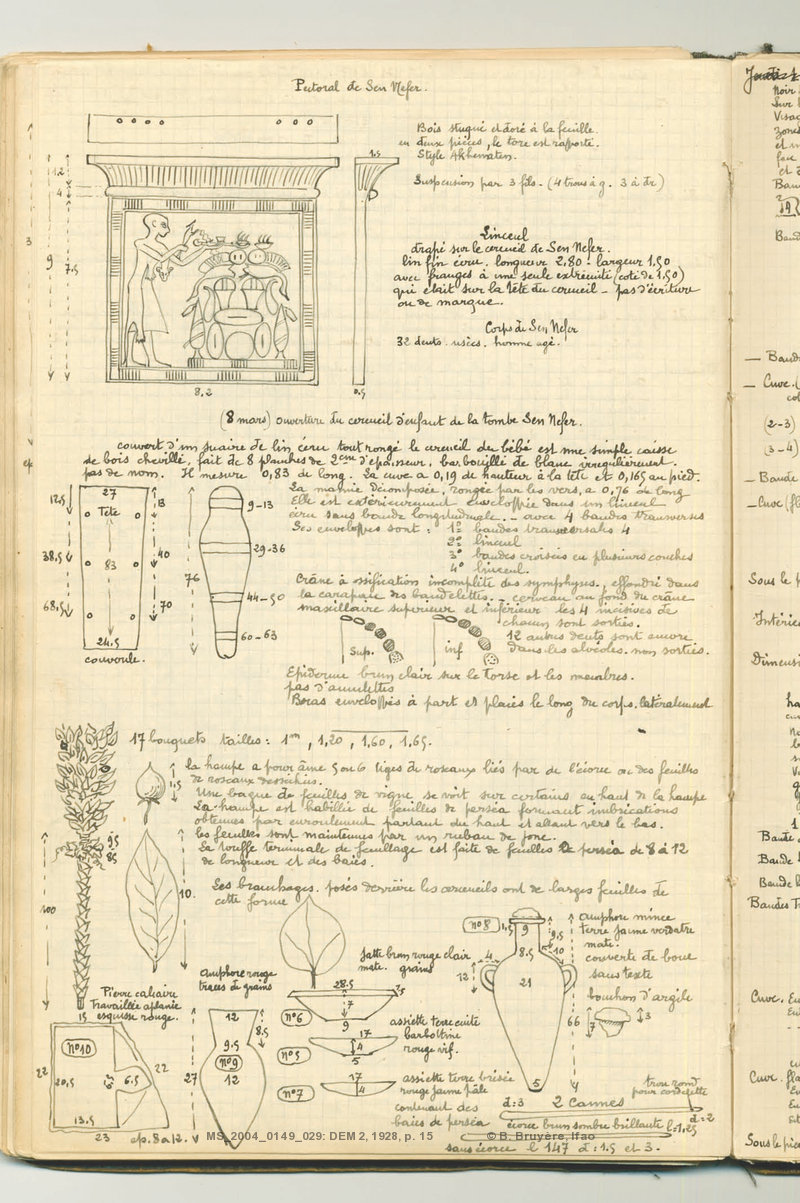 Pectoral de Sen Nefer.
Bois stuqué et doré à la feuille.
en deux pièces, le tore est rapporté.
Style
Suspension par 3 fils - (4 trous à g. 3 à dr)
1.5
1.2
4
3
9
7.5
8,2
0.5
Linceul
drapé sur le cercueil de Sen Nefer.
lin fin écru. longueur 2,80. largeur 1,50
avec franges à une seule extrémité (coté de 1,50)
qui était sur la tête du cercueil - pas d'écriture
ou de marque.
Corps de Sen Nefer
32 dents. usées. homme agé.
(8 mars) ouverture du cercueil d'enfant de la tombe Sen Nefer.
couvert d'un suaire de lin écru tout rongé le cercueil du bébé est une simple caisse
de bois chevillé, fait de 8 planches de 2cm d'épaisseur, barbouillé de blanc irregulièrement.
pas de nom. Il mesure 0,83 de long. La cuve a 0,19 de hauteur à la tête et 0,165 au pied.
La momie décomposée, rongée par les vers, a 0,76 de long
Elle est extérieurement enveloppée dans un linceul
écru sans bande longitudinale. - avec 4 bandes transverses
Ses enveloppes sont : 1° bandes transversales 4
2° linceul
3° bandes croisées en plusieurs couches
4° linceul.
27
Tête
12,5
38,5
68,5
83
24.5
couvercle.
13
40
70
76
9-13
29-36
44-50
60-63
Crâne à ossification incomplète des symphyses, effondré dans
la carapace des bandelettes. - cerveau au fond du crâne
maxillaire supérieur et inférieur les 4 incisives de
chacun sont sorties.
12 autres dents sont encore
dans les alvéoles. non sorties.
Sup.
inf
Epiderme brun clair sur le torse et les membres.
pas d'amulettes
Bras enveloppés à part et placés le long du corps. latéralement
17 bouquets tailles : 1m, 1,20, 1,60, 1,65.
la hampe a pour âme 5 ou 6 tiges de roseaux liés par de l'écorce ou des feuilles
de roseaux desséchées.
Une bague de feuilles de vigne se voit sur certains en haut de la hampe
La hampe est habillée de feuilles de perséa formant imbrications
obtenues par enroulement partant du haut et allant vers le bas.
les feuilles sont maintenues par un ruban de jonc.
La touffe terminale de feuillage est faite de feuilles de perséa de 8 à 12
de longueur et des baies.
Les branchages posés derrière les cercueils ont de larges feuilles de
cette forme
1,5
10.
100
Pierre calcaire
Travaillée aplanie
esquisse rouge.
15
N° 10
22
20,5
6.5
22
13.5
23
ep. 8 a 12.
Amphore rouge
traces de grains
12
8.5
9.5
N° 9
12
27
jatte brun rouge clair
mate. grains
28.5
7
9
N° 6
assiette terre cuite
barbotine
rouge vif.
17
4
5
N° 5
assiette terre brisée
rouge jaune pâle
contenant des
baies de perséa
17
4
N° 7
N° 8
1,5
9
9.5
8.5
10
4
12
21
66
5
amphore mince
terre jaune verdatre
mate.
couverte de boue
sans texte
bouchon d'argile
3
7
trou rond
pour cordelette
d:3
2 cannes
d:2
écorce brun sombre brillante l:1,25
sans écorce l 147 d:1.5 et 3.
MS_2004_0149_029: DEM 2, 1928, p. 15
© B. Bruyère, Ifao
Noir
Visag
et
Bande
Cuve.
(2-3)
(3-4)
Bande
Cuve
Sous le
Intérieu
Dimensi
Bande
Bande
Bande
Bandes
Cuve.
Cuve.
Sous le